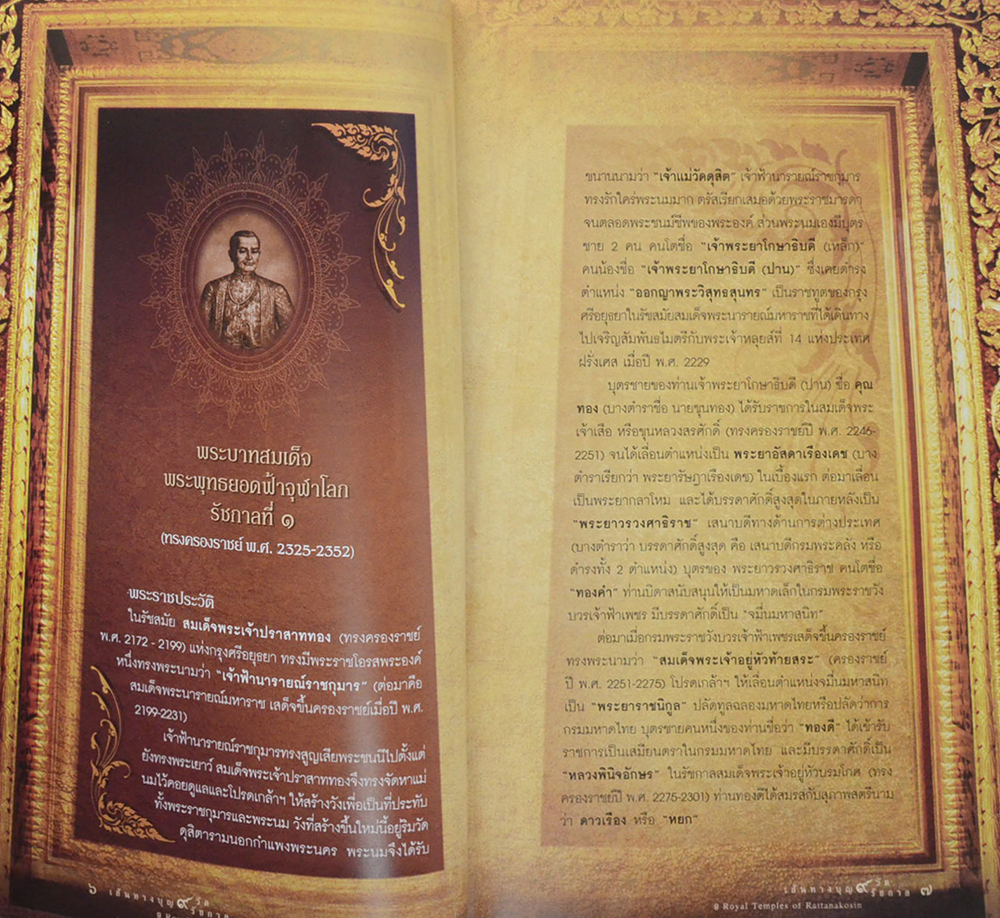 พระบาทสมเด็จ
พระพุทธยอดฟ้าจุฬาโลก
รัชกาลที่ ๑
(ทรงครองราชย์ พ.ศ. 2325-2352)
พระราชประวัติ
ในรัชสมัย สมเด็จพระเจ้าปราสาททอง (ทรงครองราชย์
พ.ศ. 2172 - 2199) แห่งกรุงศรีอยุธยา ทรงมีพระราชโอรสพระองค์
หนึ่งทรงพระนามว่า "เจ้าฟ้านารายณ์ราชกุมาร" (ต่อมาคือ
สมเด็จพระนารายณ์มหาราช เสด็จขึ้นครองราชย์เมื่อปี พ.ศ.
2199-2231)
เจ้าฟ้านารายณ์ราชกุมารทรงสูญเสียพระชนนีไปตั้งแต่
ยังทรงพระเยาว์ สมเด็จพระเจ้าปราสาททองจึงทรงจัดหาแม่
นมไว้คอยดูแลและโปรดเกล้าฯ ให้สร้างวังเพื่อเป็นที่ประทับ
ทั้งพระราชกุมารและพระนม วังที่สร้างขึ้นใหม่นี้อยู่ริมวัด
ดุสิตารามนอกกำแพงพระนคร พระนมจึงได้รับ
๖ เส้นทางบุญ ๙ วัด
รัชกาล
ขนานนามว่า "เจ้าแม่วัดดุสิต" เจ้าฟ้านารายณ์ราชกุมาร
ทรงรักใคร่พระนมมาก ตรัสเรียกเสมอด้วยพระราชมารดา
จนตลอดพระชนม์ชีพของพระองค์ ส่วนพระนมเองมีบุตร
ชาย 2 คน คนโตชื่อ "เจ้าพระยาโกษาธิบดี (เหล็ก)"
คนน้องชื่อ "เจ้าพระยาโกษาธิบดี (ปาน)" ซึ่งเคยดำรง
ตำแหน่ง "ออกญาพระวิสุทธสุนทร" เป็นราชทูตของกรุง
ศรีอยุธยาในรัชสมัยสมเด็จพระนารายณ์มหาราชที่ได้เดินทาง
ไปเจริญสัมพันธไมตรีกับพระเจ้าหลุยส์ที่ 14 แห่งประเทศ
ฝรั่งเศส เมื่อปี พ.ศ. 2229
บุตรชายของท่านเจ้าพระยาโกษาธิบดี (ปาน) ชื่อ คุณ
ทอง (บางตำราชื่อ นายขุนทอง) ได้รับราชการในสมเด็จพระ
เจ้าเสือ หรือขุนหลวงสรศักดิ์ (ทรงครองราชย์ปี พ.ศ. 2246-
2251) จนได้เลื่อนตำแหน่งเป็น พระยาอัสดาเรืองเดช (บาง
ตำราเรียกว่า พระยารัษฎาเรืองเดช) ในเบื้องแรก ต่อมาเลื่อน
เป็นพระยากลาโหม และได้บรรดาศักดิ์สูงสุดในภายหลังเป็น
"พระยาวรวงศาธิราช" เสนาบดีทางด้านการต่างประเทศ
(บางตำราว่า บรรดาศักดิ์สูงสุด คือ เสนาบดีกรมพระคลัง หรือ
ดำรงทั้ง 2 ตำแหน่ง) บุตรของ พระยาวรวงศาธิราช คนโตชื่อ
"ทองคำ" ท่านบิดาสนับสนุนให้เป็นมหาดเล็กในกรมพระราชวัง
บวรเจ้าฟ้าเพชร มีบรรดาศักดิ์เป็น "จมื่นมหาสนิท"
ต่อมาเมื่อกรมพระราชวังบวรเจ้าฟ้าเพชรเสด็จขึ้นครองราชย์
ทรงพระนามว่า "สมเด็จพระเจ้าอยู่หัวท้ายสระ" (ครองราชย์
ปี พ.ศ. 2251-2275) โปรดเกล้าฯ ให้เลื่อนตำแหน่งจมื่นมหาสนิท
เป็น "พระยาราชนิกูล" ปลัดทูลฉลองมหาดไทยหรือปลัดว่าการ
กรมมหาดไทย บุตรชายคนหนึ่งของท่านชื่อว่า "ทองดี" ได้เข้ารับ
ราชการเป็นเสมียนตราในกรมมหาดไทย และมีบรรดาศักดิ์เป็น
"หลวงพินิจอักษร" ในรัชกาลสมเด็จพระเจ้าอยู่หัวบรมโกศ (ทรง
ครองราชย์ปี พ.ศ. 2275-2301) ท่านทองดีได้สมรสกับสุภาพสตรีนาม
ว่า ดาวเรือง หรือ "หยก"
เส้นทางบุญ ๙ วัด
รัชกาล ๗
9 Royal Temples of Rattanakosin